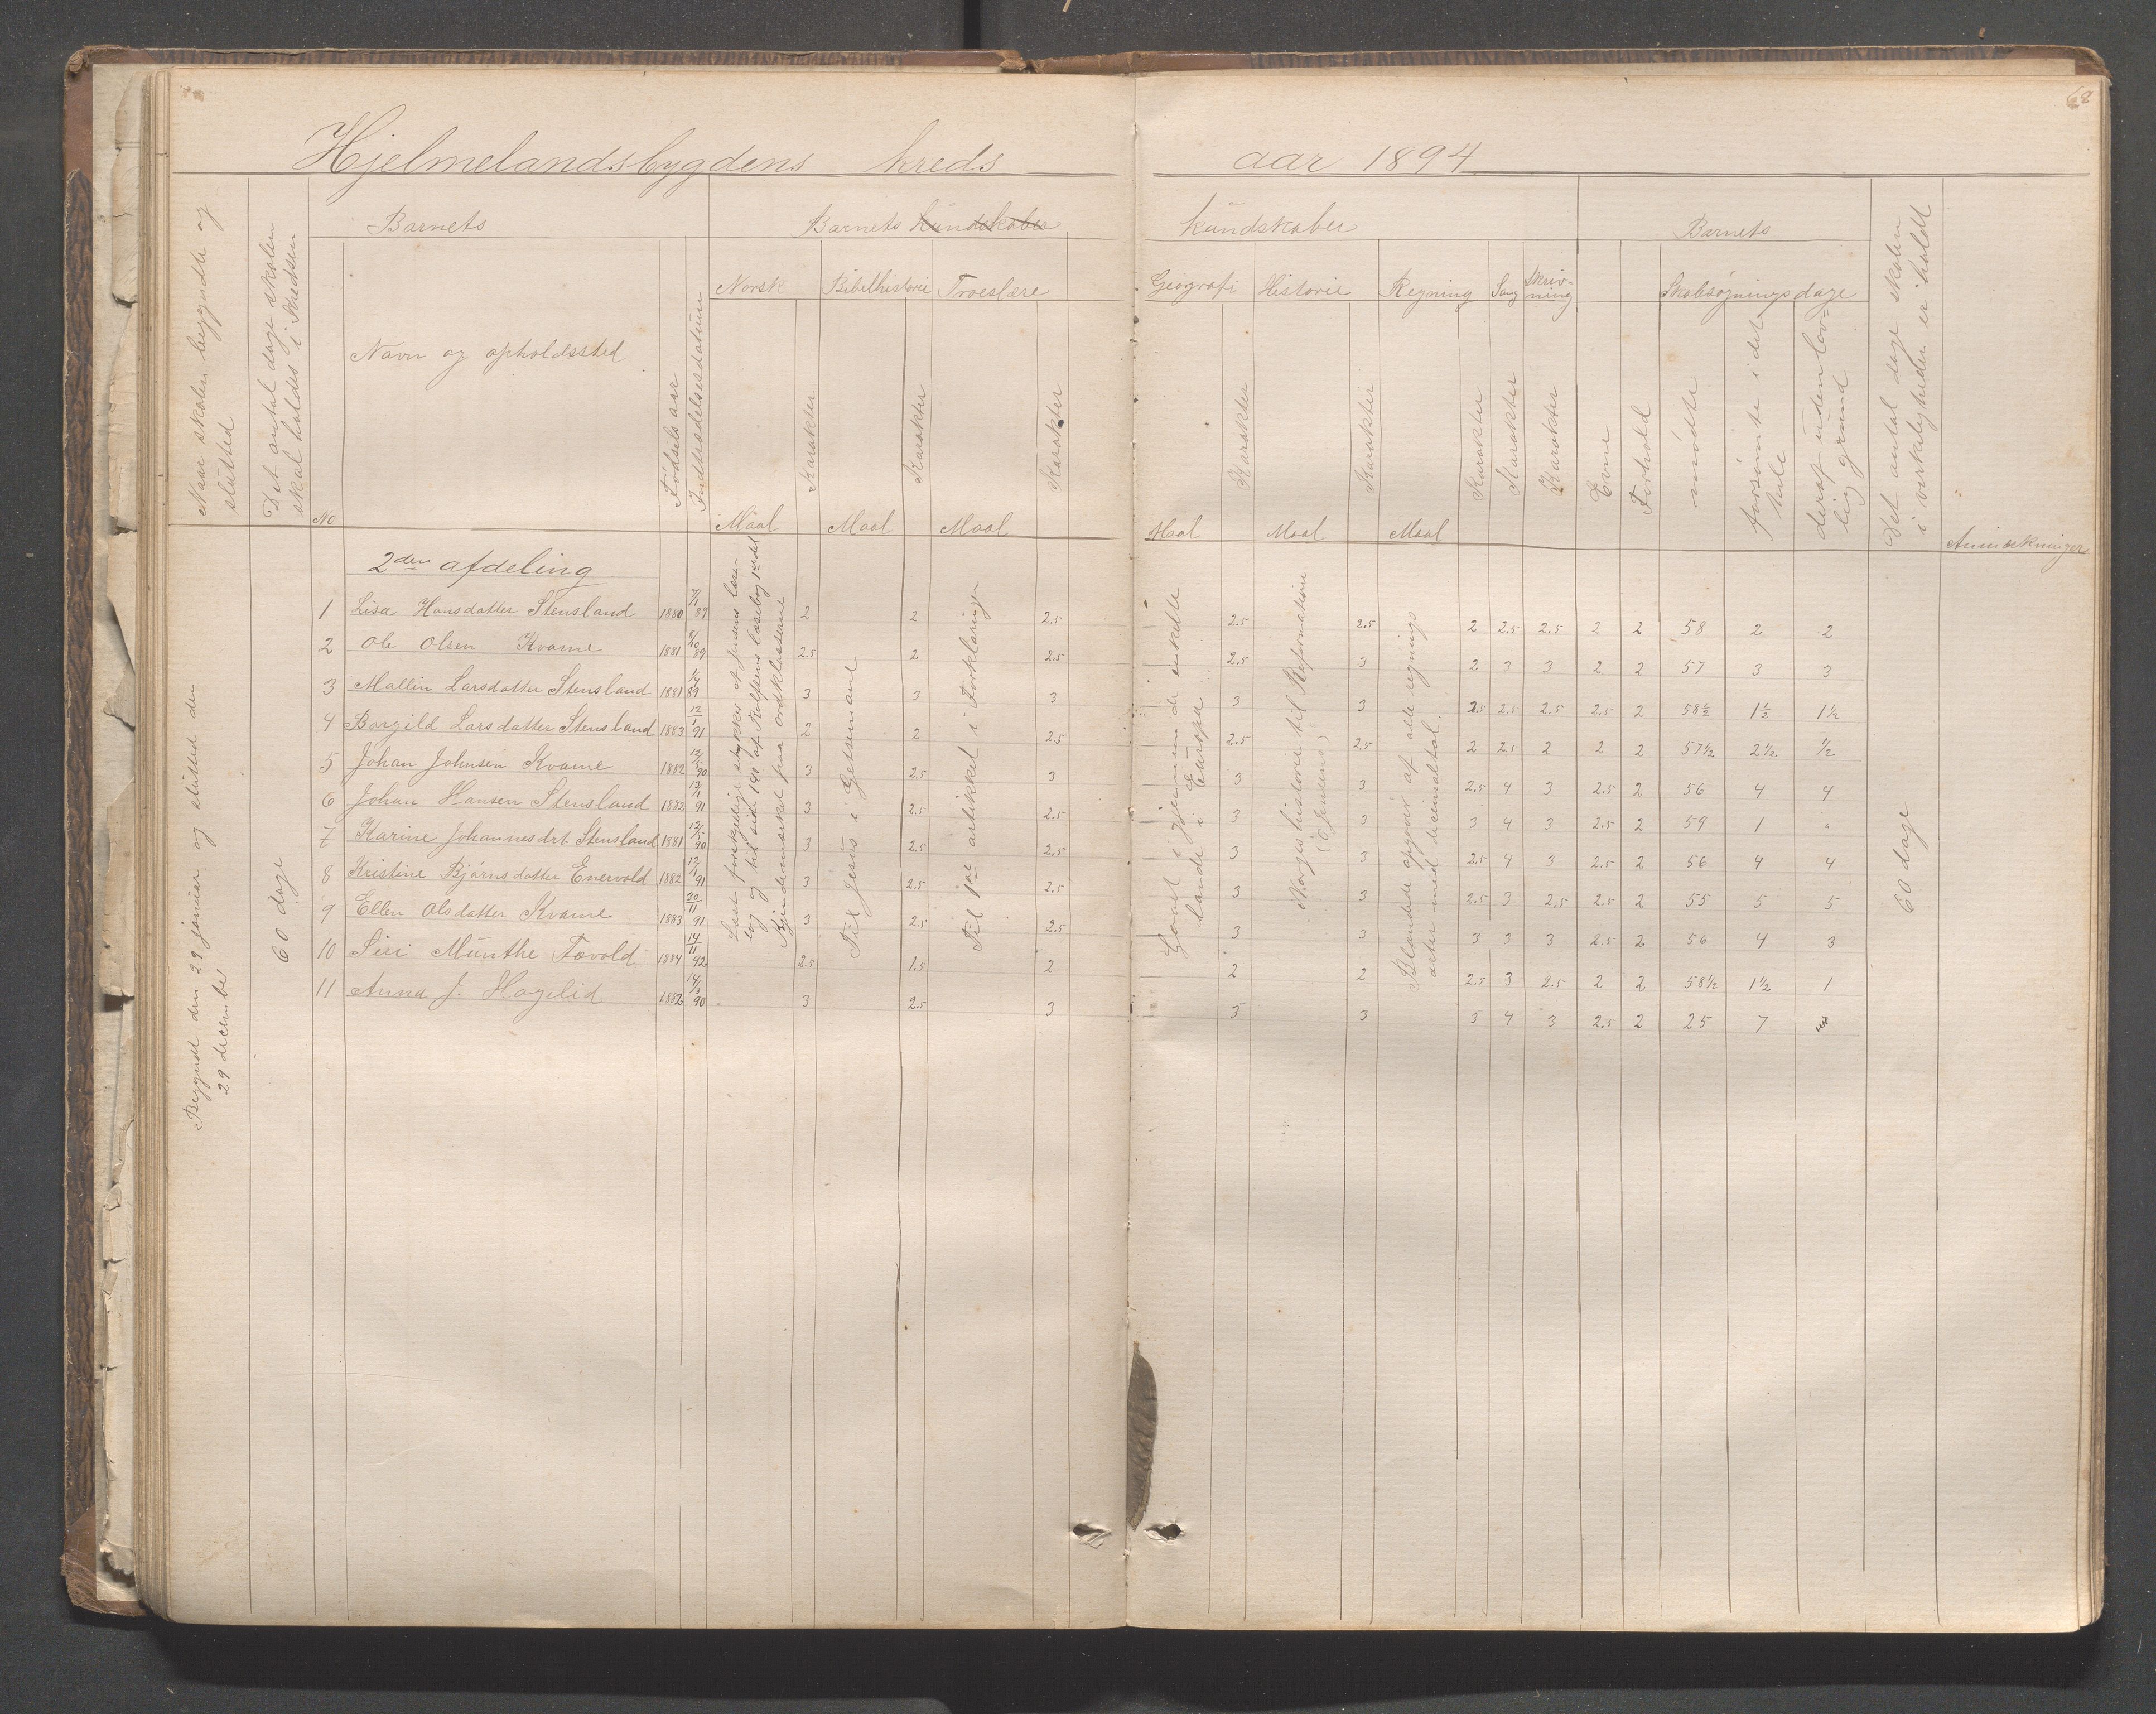 68
Hjelmelandsbygdens kreds aar 1894
Naar skolen begyndte og slutted
Det antal dage skolen skal holdes i kredsen
Barnets
Barnets kundskaber
kundskaber
Barnets
Det antal dage skolen i virkeligheden er holdt
Norsk Bibelhistorie Troeslære
Geografi Historie Regning Sang Skriv-
ning
Skolesøgningsdage
No
Navn og opholdssted
Fødsels aar
Indtrædelsesdatum
Maal Karakter Maal Karakter Maal Karakter
Maal Karakter Maal Karakter Maal Karakter Karakter Karakter
Evne Forhold
mødte
forsømte i det hele
deraf uden lov-
lig grund
Anmærkninger
Begyndt den 29 januar og slutted den
29 december
60 dage
2den afdeling
1 Lisa Hansdatter Stensland 1880 7/1 89 2 2 2.5 2.5 2.5 2 2.5 2.5 2 2 58 2 2
2 Ole Olsen Kvame 1881 89 2.5 2 2.5 2.5 3 2 3 3 2 2 57 3 3
3 Mallin Larsdatter Stensland 1881 89 3 3 3 3 3 2.5 2.5 2.5 2.5 2 58½ 1½ 1½
4 Borgild Larsdatter Stensland 1883 12/1 91 2 2 2.5 2.5 2.5 2 2.5 2 2 2 57½ 2½ ½
5 Johan Johnsen Kvame 1882 12/5 90 3 2.5 3 3 3 2.5 4 3 2.5 2 56 4 4
6 Johan Hansen Stensland 1882 13/11 91 3 2.5 2.5 3 3 3 4 3 2.5 2 59 1 "
7 Karine Johannesdat Stensland 1881 12/5 90 3 2.5 2.5 3 3 2.5 4 3 2.5 2 56 4 4
8 Kristine Bjørnsdatter Enervold 1882 12/1 91 3 2.5 2.5 3 3 2.5 3 2.5 2.5 2 55 5 5
9 Ellen Olsdatter Kvame 1883 20/11 91 3 2.5 2.5 3 3 3 3 3 2.5 2 56 4 3
10 Siri Munthe Tøvold 1884 14/11 92 2.5 1.5 2 2 2 2.5 3 2.5 2 2 58½ 1½ 1
11 Anna J. Hagelid 1882 14/3 90 3 2.5 3 3 3 3 4 3 2.5 2 25 7
Læst forskjellige stykker af Jensens læse-
bog og til side 190 af Rolfsens læsebog 1ste del
Gjendemærket paa ordklasserne
Til Jesus i Getsemane
Til 1ste artikkel i Forklaringen
Gaaet igjennem de enkelte
lande i Europa
Norges historie til Reformationen
(O Jensens)
Blandede opgaver af alle regnings
arter med decimaltal.
60 dage